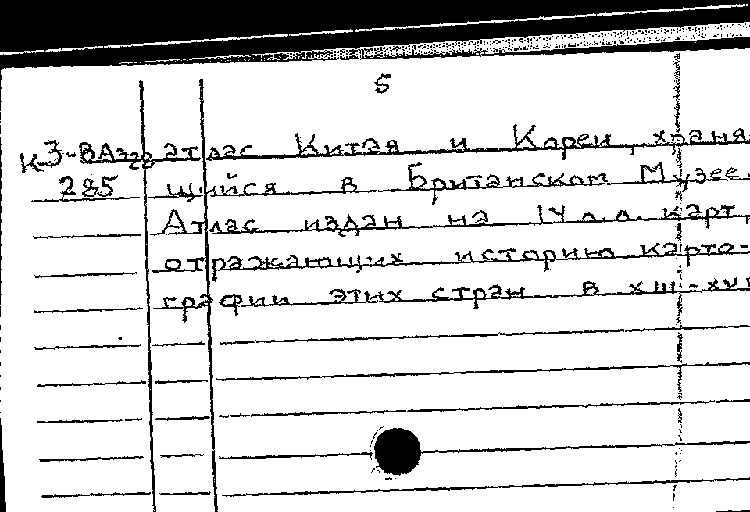 5
К-3-ВАзэ атлас Китая и Кореи, храня-
285 щийся в Британском Музее.
Атлас издан на IV л.л. карт,
отражающих историю карто-
графии этих стран в XIII-XVI